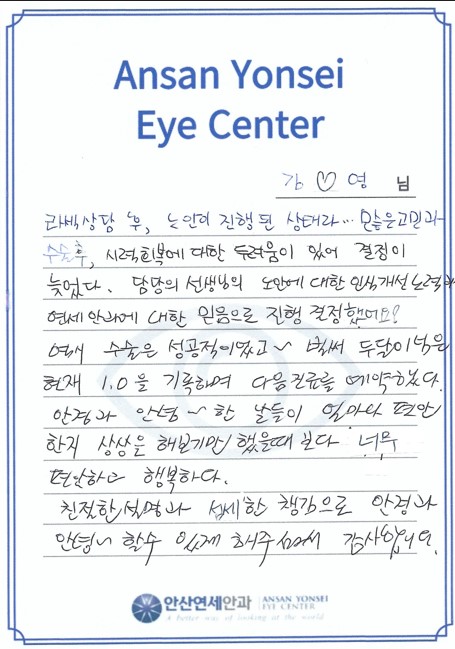 Ansan Yonsei
Eye Center
김 ♡ 영 님
라섹상담 후, 노안이 진행된 상태라... 많은고민과
수술후, 시력회복에 대한 두려움이 있어 결정이
늦었다. 담당의 선생님의 노안에 대한 인식개선 노력과
연세안과에 대한 믿음으로 진행 결정했어요!
수술은 성공적이였고~ 벌써 두달이 넘은
현재 1.0을 기록하며 다음진료를 예약하였다.
안경과 안녕~ 한 날들이 얼마나 편안
한지 상상은 해보기만 했을때 보다 너무
편안하고 행복하다.
친절한 설명과 섬세한 챙김으로 안경과
안녕~ 할수 있게 해주셔서 감사합니다.
안산연세안과 ANSAN YONSEI
EYE CENTER
A better way of looking at the world